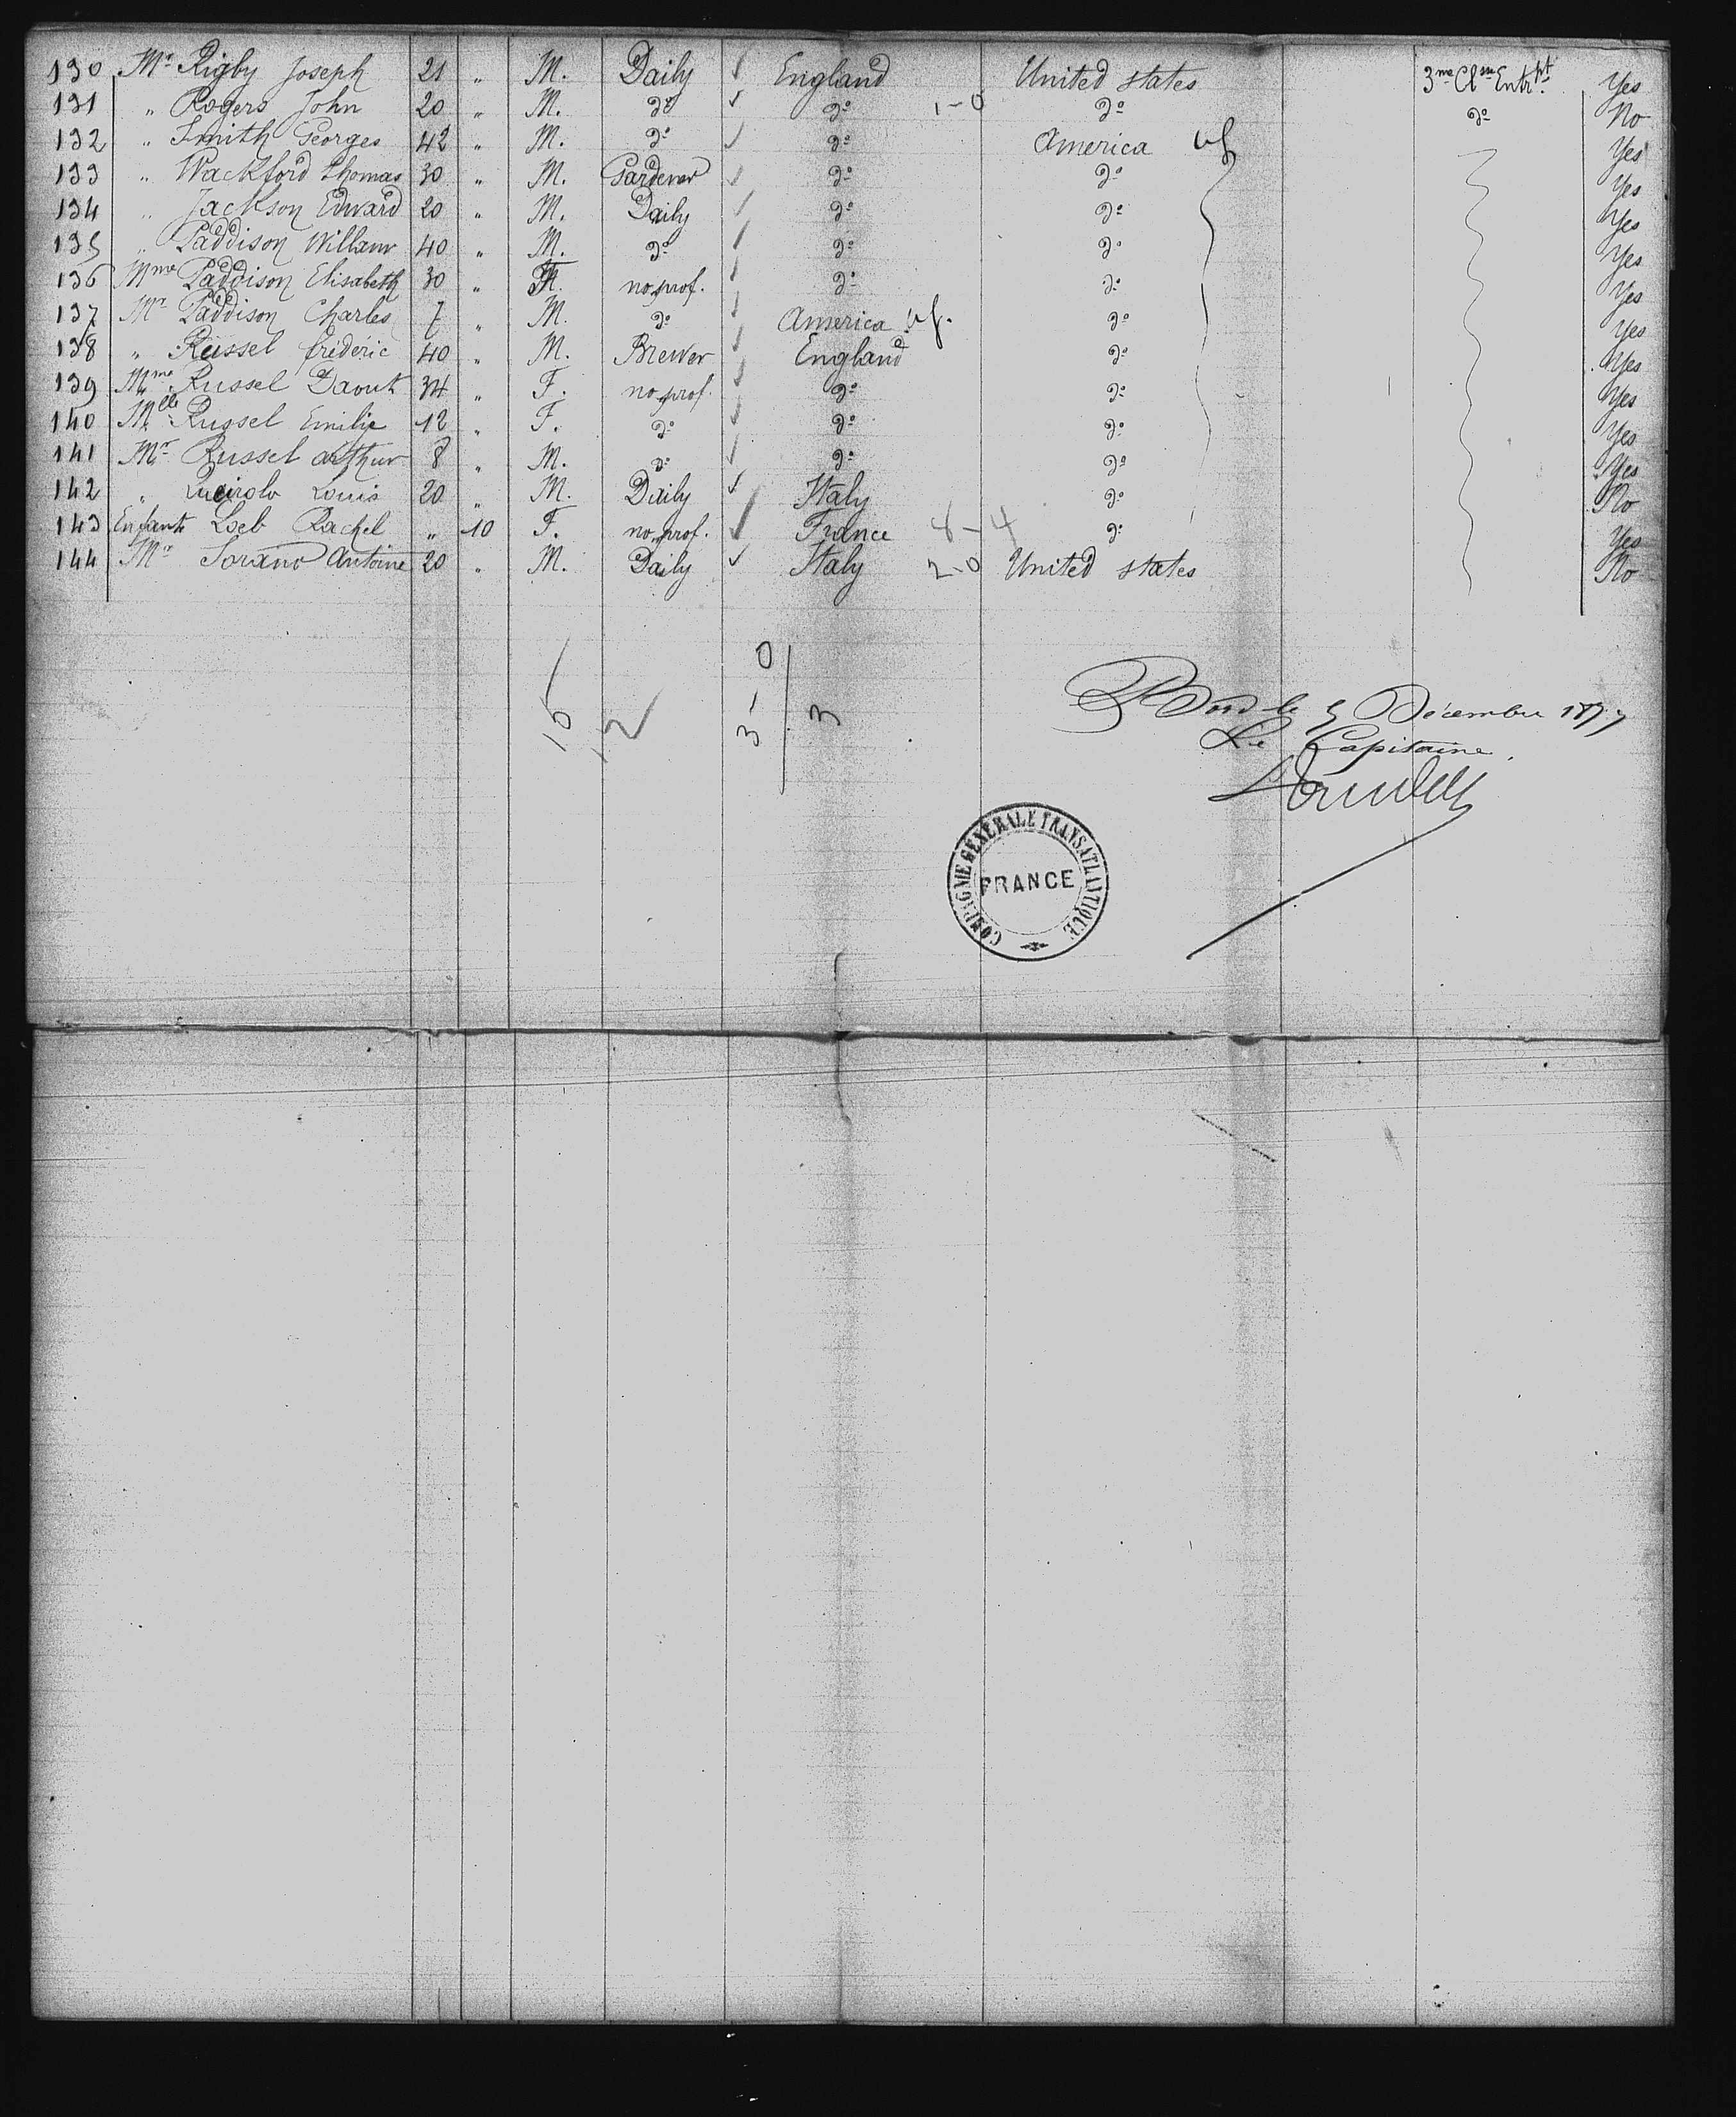 130 Mr Rigby Joseph 21 " M. Daily England United states 3me Clsse Entrpt Yes
131 " Rogers John 20 " M. do do 1-0 do do No
132 " Smith Georges 42 " M. do do America Yes
133 " Wackford Thomas 30 " M. Gardener do do Yes
134 " Jackson Edward 20 " M. Daily do do Yes
135 " Paddison Willam 40 " M. do do do Yes
136 Mme Paddison Elisabeth 30 " F. no prof. do do Yes
137 Mr Paddison Charles 7 " M. do America do Yes
138 " Russel frédéric 40 " M. Brewer England do Yes
139 Mme Russel 34 " F. no prof. do do Yes
140 Mlle Russel Emilie 12 " F. do do do Yes
141 Mr Russel arthur 8 " M. do do do Yes
142 " Louis 20 " M. Daily Italy do No
143 Enfant Loeb Rachel " 10 F. no prof. France 8-4 do Yes
144 Mr Sorano Antoine 20 " M. Daily Italy 2-0 United states No
15 12 3-0 3
Bord le 5 Décembre 1877
Le Capitaine
COMPAGNIE GÉNÉRALE TRANSATLANTIQUE
FRANCE